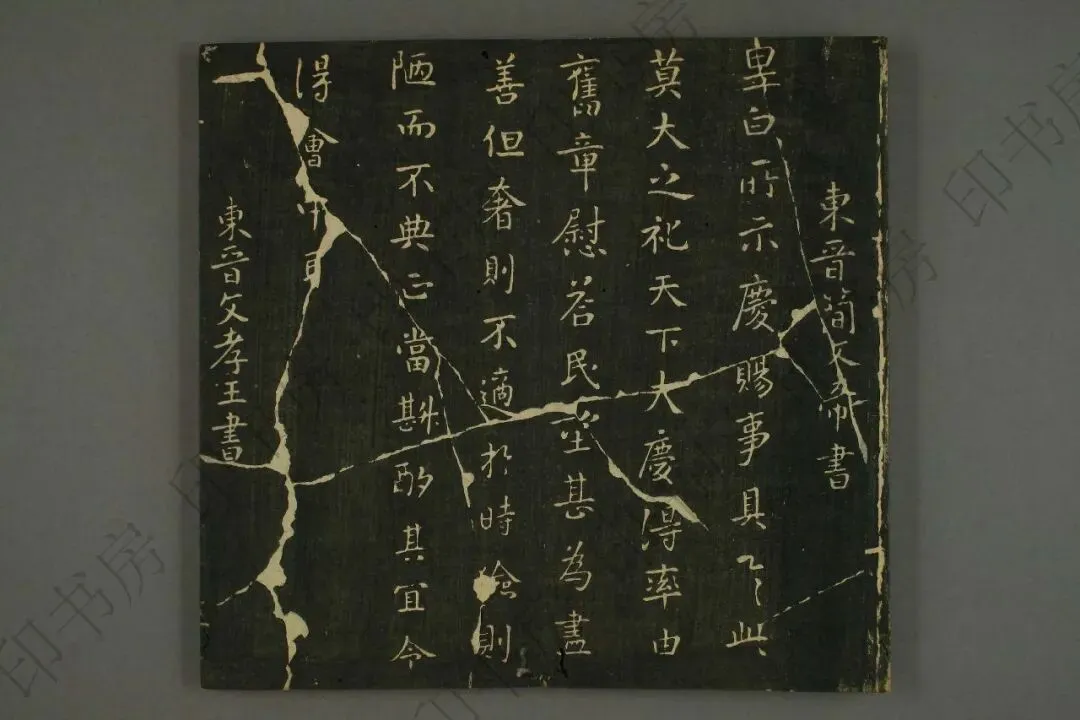 東晉簡文帝書
昱白所示慶賜事具了此
莫大之祀天下大慶得率由
舊章慰荅民望甚為盡
善但奢則不適於時儉則
陋而不典正當斟酌其宜令
得會中耳
東晉文孝王書
印书房
印书房
印书房
印书房